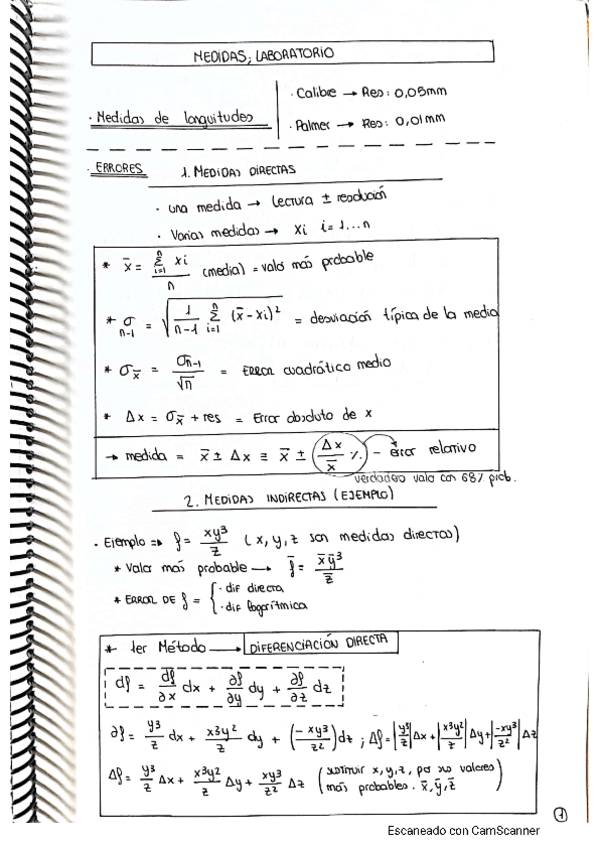 MEDIDAS; LABORATORIO
· Calibre → Res: 0,05mm
· Medidas de longuitudes
· Palmer → Res: 0,01mm
· ERRORES 1. MEDIDAS DIRECTAS
· una medida → Lectura ± resolución
· Varias medidas → xi i=1...n
* x̄ = Σ(i=1, n) xi / n (media) = valor más probable
* σ n-1 = √(1/(n-1) Σ(i=1, n) (x̄-xi)²) = desviación típica de la media
* σx̄ = σn-1/√n = ERROR cuadrático medio
* Δx = σx̄ + res = Error absoluto de x
→ medida = x̄ ± Δx ≡ x̄ ± (Δx/x̄ %) - error relativo
verdadero valor con 68% prob.
2. MEDIDAS INDIRECTAS (EJEMPLO)
· Ejemplo => f = xy³/z (x,y,z son medidas directas)
* Valor más probable → f̄ = x̄ȳ³/z̄
* ERROR DE f = { · dif directa
· dif logarítmica
* 1er Método → DIFERENCIACIÓN DIRECTA
df = df/∂x dx + ∂f/∂y dy + ∂f/∂z dz
∂f = y³/z dx + x3y²/z dy + (-xy³/z²)dz ; Δf = |y³/z|Δx + |x3y²/z|Δy + |-xy³/z²|Δz
Δf = y³/z Δx + x3y²/z Δy + xy³/z² Δz (sustituir x,y,z, por sus valores
más probables. x̄,ȳ,z̄)
1
Escaneado con CamScanner